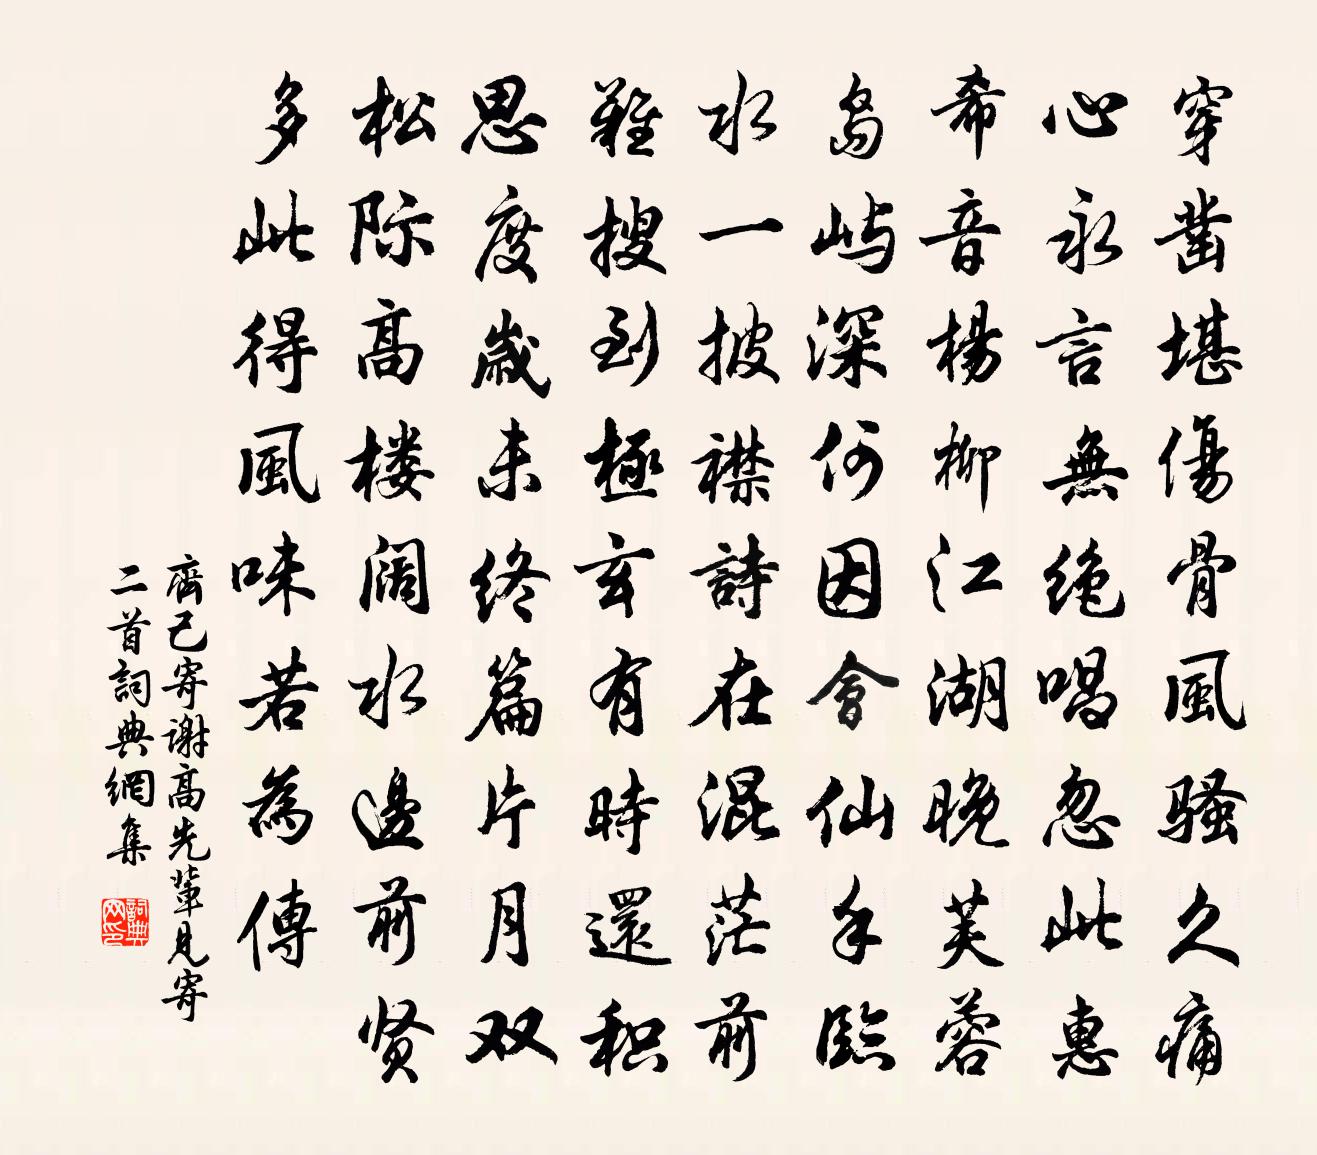 穿凿堪傷骨風骚久痛
心永言無绝唱忽此惠
希音楊柳江湖晚芙蓉
岛屿深何因會仙手臨
水一披襟詩在混茫前
難搜到極玄有時還积
思度歲未终篇片月双
松际高楼阔水邊前贤
多此得風味若為傳
齊己寄谢高先輩見寄
二首詞典網集
詞典网印